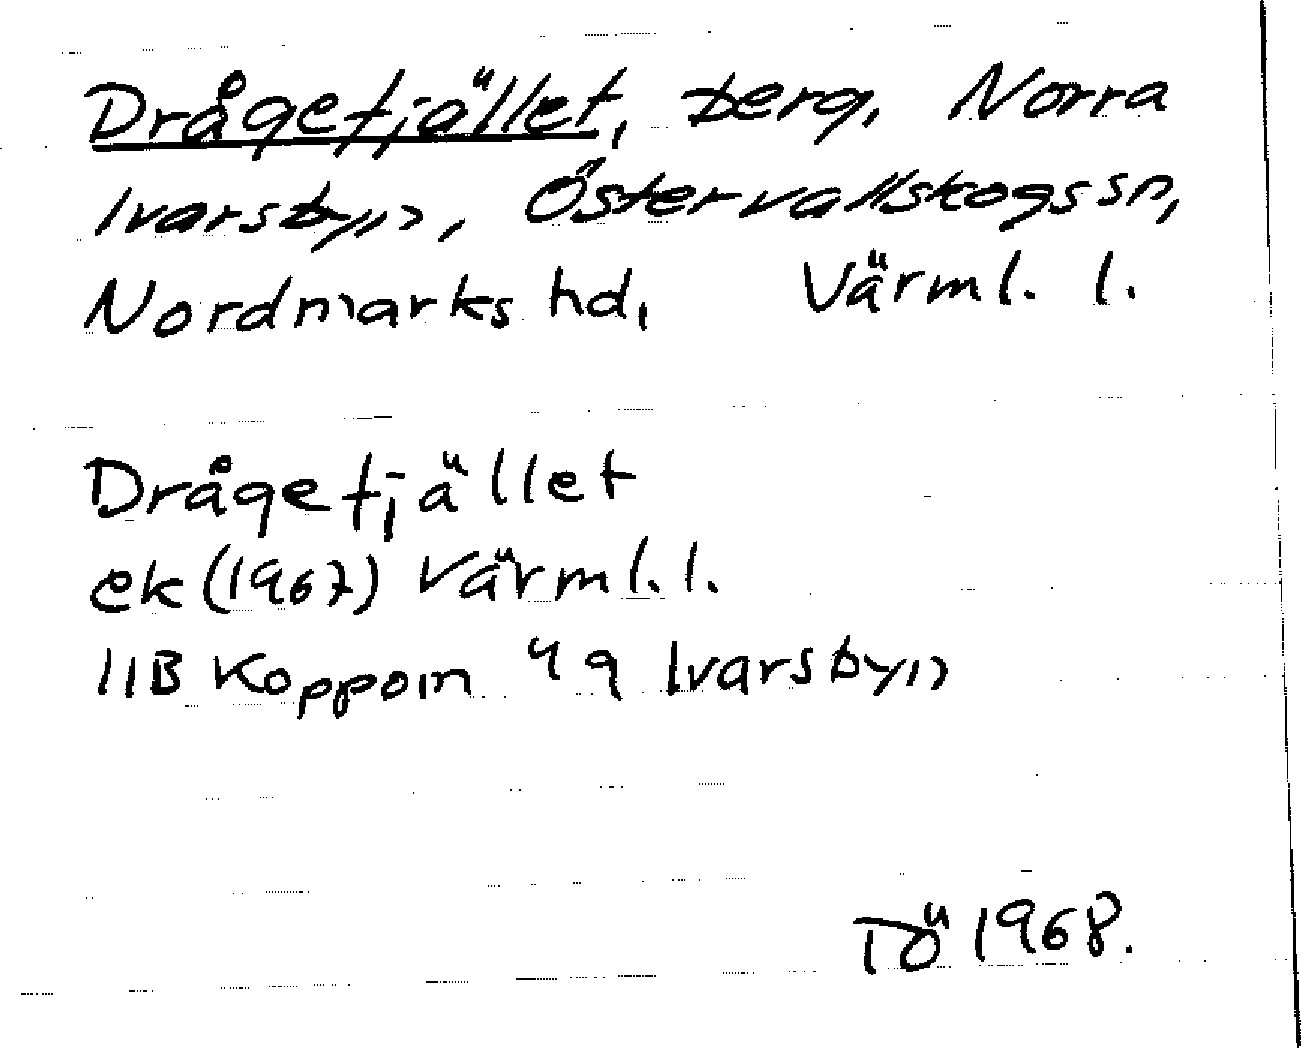 Drågefjället, berg, Norra
Ivarsbyn, Östervallskogs sn,
Nordmarks hd, Värml. l.
Drågefjället
ek (1967) Värml. l.
11B Koppom 4 g Ivarsbyn
TÖ 1968.